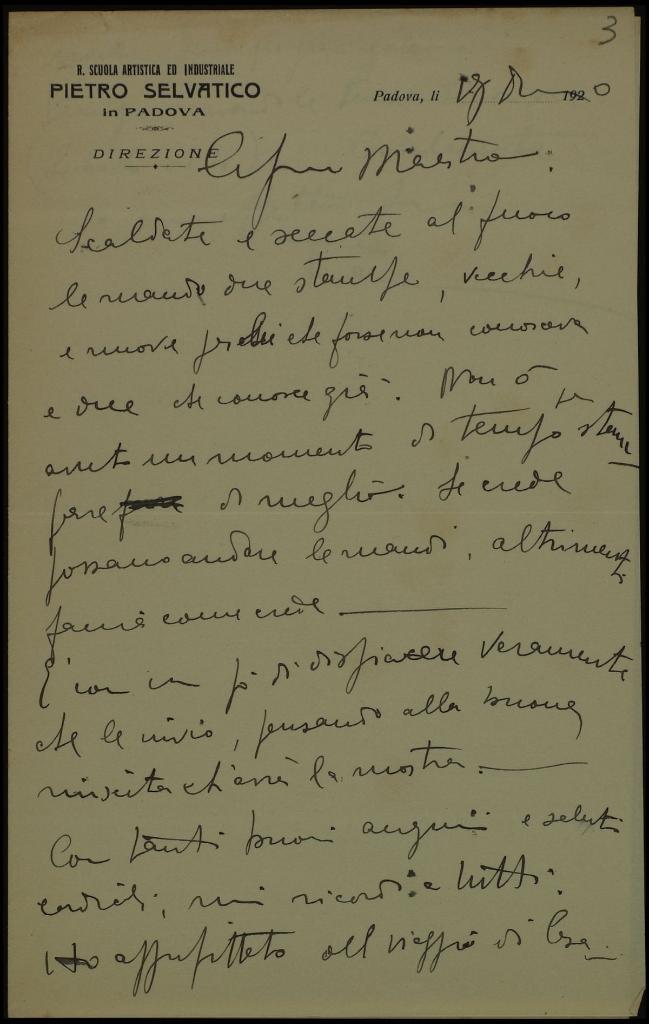 3
R. SCUOLA ARTISTICA ED INDUSTRIALE
PIETRO SELVATICO
in PADOVA
DIREZIONE
Padova, li 19 1920
Maestro.
Scaldate e seccate al fuoco
le mando due stampe, vecchie,
e nuove per che forse non conosceva
e due che conosce già. Non ò
avuto un momento di tempo per stam
pare di meglio. Se crede
possano andare le mandi, altrimenti
faccia come crede
E' con un pò di dispiacere veramente
che le invio, pensando alla buona
riuscita ch'avrà la mostra.
Con tanti buoni auguri e saluti
cordiali, mi ricordi a tutti.
Ho approfittato del viaggio di